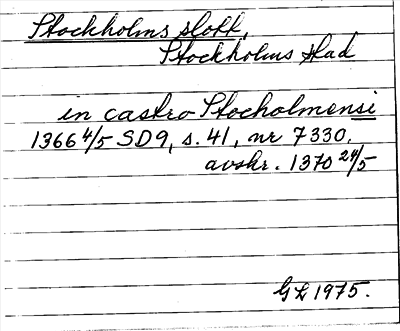 Stockholms slott,
Stockholms stad
in castro Stocholmensi
1366 4/5 SD9, s. 41, nr 7330.
avskr. 1370 24/5
GL 1975.